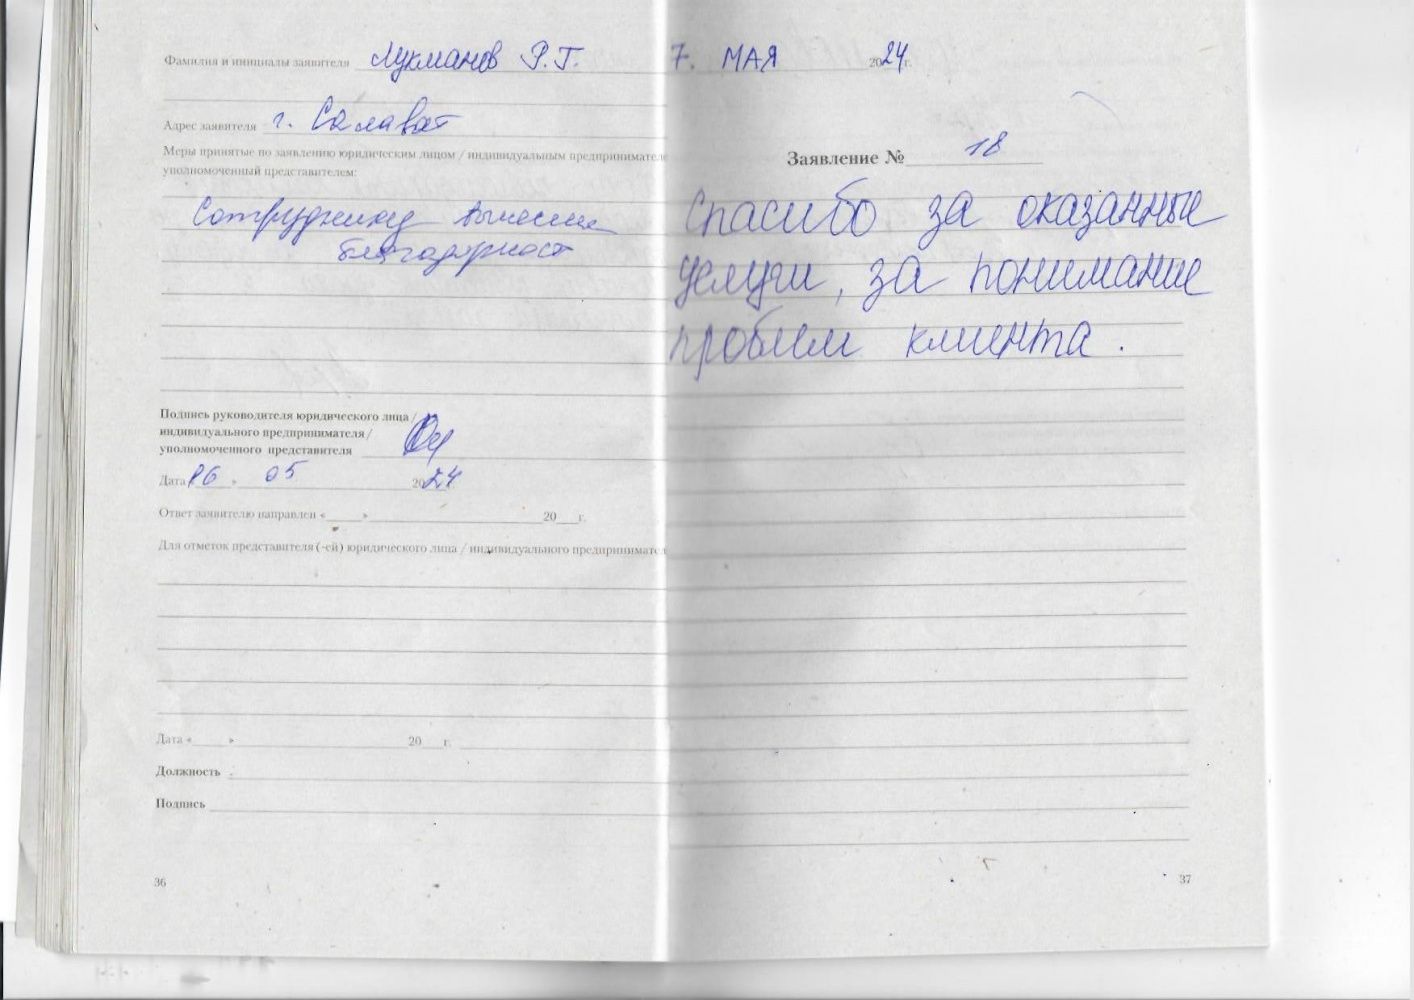 Фамилия и инициалы заявителя Лукманов Р.Г.
Адрес заявителя г. Салават
Меры принятые по заявлению юридическим лицом / индивидуальным предпринимателе
уполномоченный представителем:
Сотруднику вынесена
благодарност
Подпись руководителя юридического лица /
индивидуального предпринимателя /
уполномоченного представителя
Дата 16 » 05 2024
Ответ заявителю направлен « » 20 г.
Для отметок представителя (-ей) юридического лица / индивидуального предпринимател
Дата « » 20 г.
Должность
Подпись
36
7. МАЯ 2024 г.
Заявление № 18
Спасибо за оказанные
услуги, за понимание
проблем клиента.
37